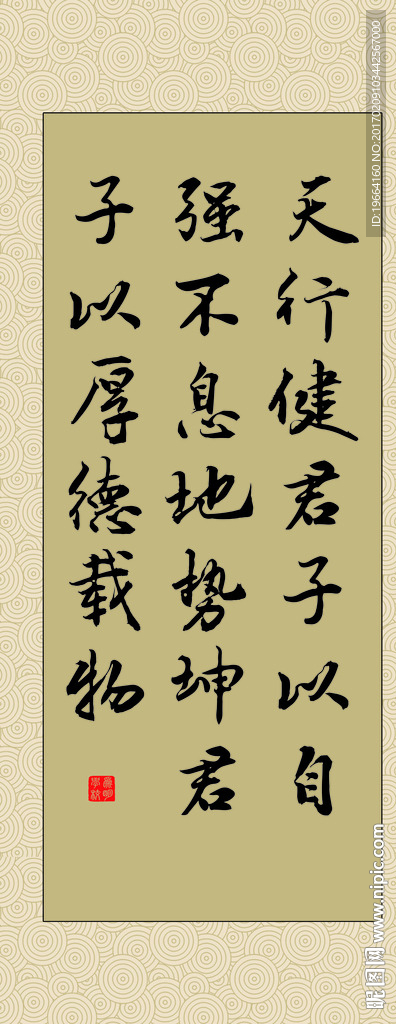 天行健君子以自
强不息地势坤君
子以厚德载物
ID:19664160 NO:20170209103442567000
昵图网 www.nipic.com